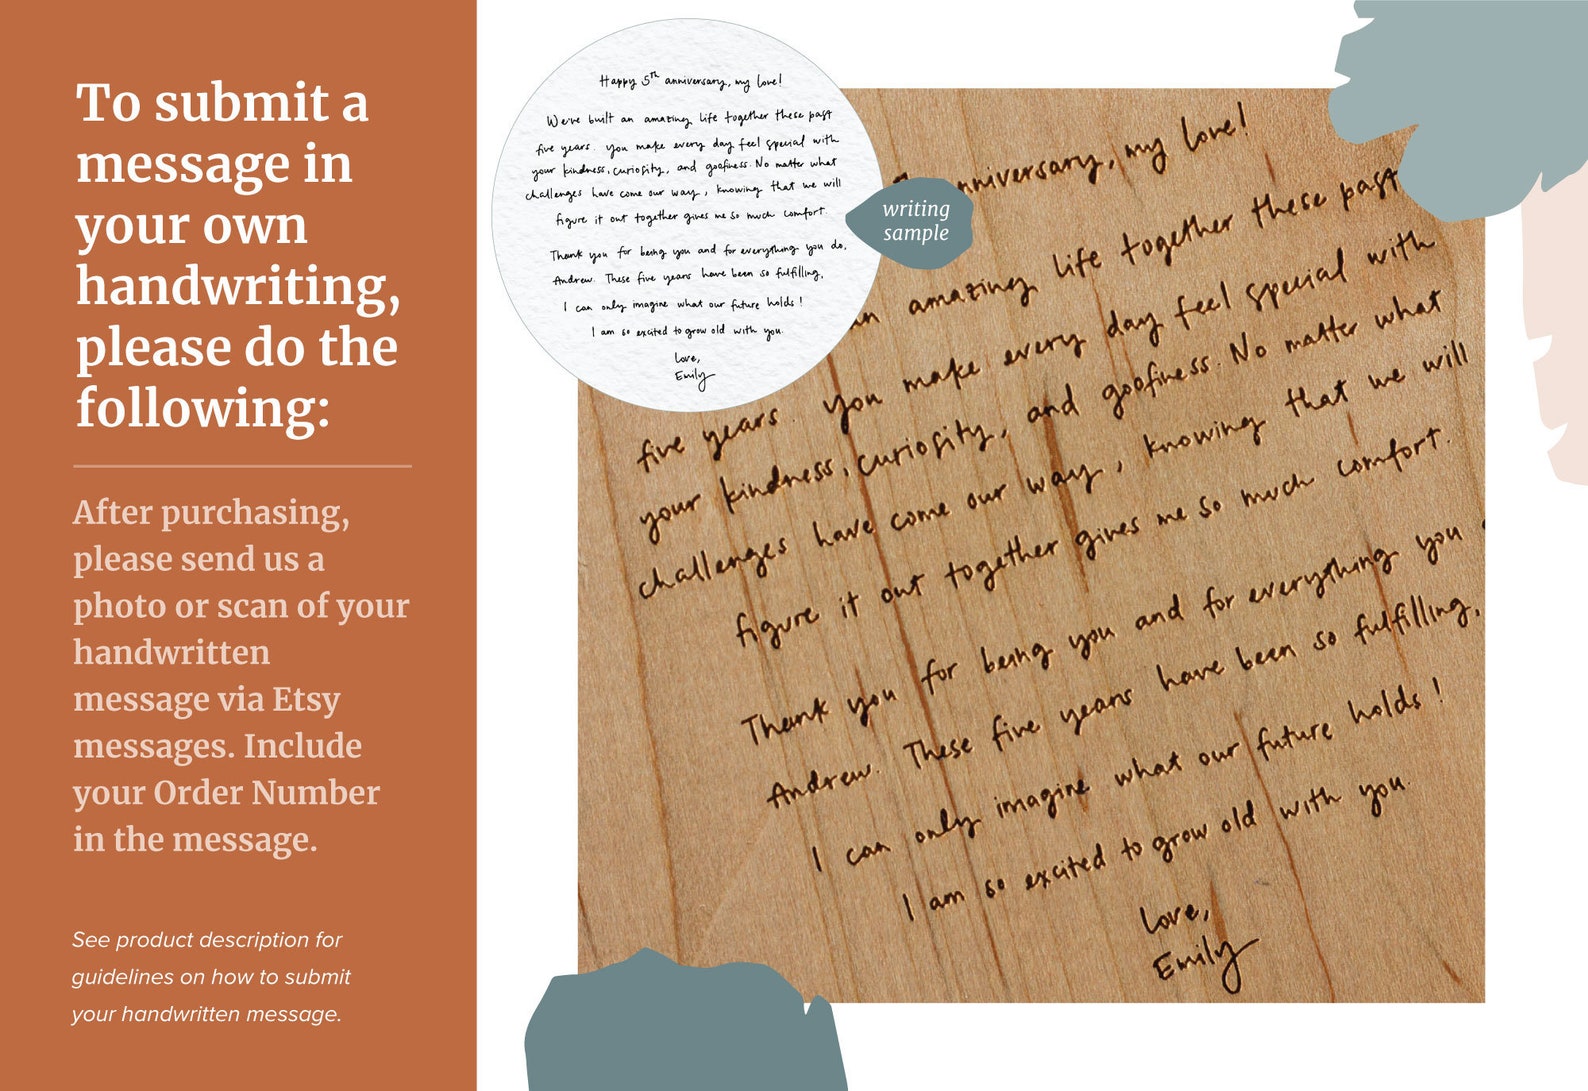 To submit a
message in
your own
handwriting,
please do the
following:
After purchasing,
please send us a
photo or scan of your
handwritten
message via Etsy
messages. Include
your Order Number
in the message.
See product description for
guidelines on how to submit
your handwritten message.
Happy 5th anniversary, my love!
We've built an amazing life together these past
five years. you make every day feel special with
your kindness, curiosity, and goofiness. No matter what
challenges have come our way, knowing that we will
figure it out together gives me so much comfort.
Thank you for being you and for everything you do,
Andrew. These five years have been so fulfilling,
I can only imagine what our future holds!
I am so excited to grow old with you.
Love,
Emily
writing
sample
anniversary, my love!
an amazing life together these past
five years. you make every day feel special with
your kindness, curiosity, and goofiness. No matter what
challenges have come our way, knowing that we will
figure it out together gives me so much comfort.
Thank you for being you and for everything you
Andrew. These five years have been so fulfilling,
I can only imagine what our future holds!
I am so excited to grow old with you.
Love,
Emily